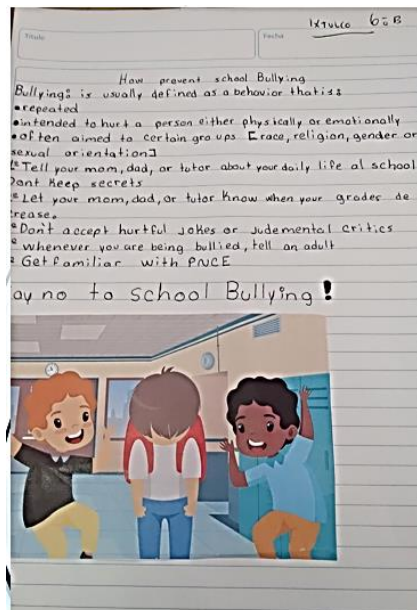 Ixtulco 6:B
Titulo
Fecha
How prevent school Bullying
Bullying: is usually defined as a behavior that is:
•repeated
•intended to hurt a person either physically or emotionally
•often aimed to certain groups [race, religion, gender or
sexual orientation]
Tell your mom, dad, or tutor about your daily life al school
Dont Keep secrets
Let your mom, dad, or tutor Know when your grades de
crease.
Don't accept hurtful Jokes or Judemental critics
Whenever you are being bullied, tell an adult
Get familiar with PNCE
ay no to school Bullying!